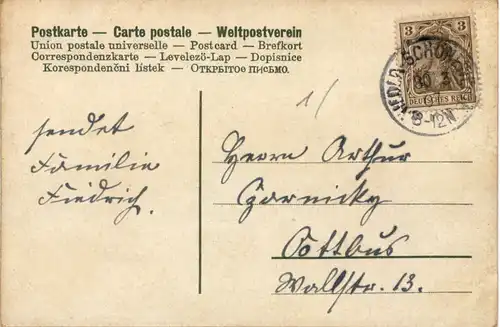 Postkarte — Carte postale — Weltpostverein
Union postale universelle — Postcard — Brefkort
Correspondenzkarte — Levelező-Lap — Dopisnice
Korespondenční lístek — Открытое письмо.
3 3
DEUTSCHES REICH
30 3
8-12N
sendet
Familie
Fiedrich.
Herrn Arthur
Zarnicky
Cottbus
Wallstr. 13.